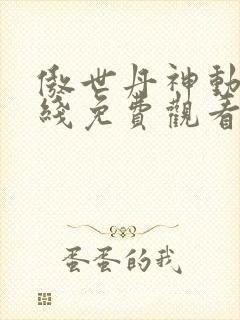 傲世丹神動
綫免費觀看
蛋蛋的我